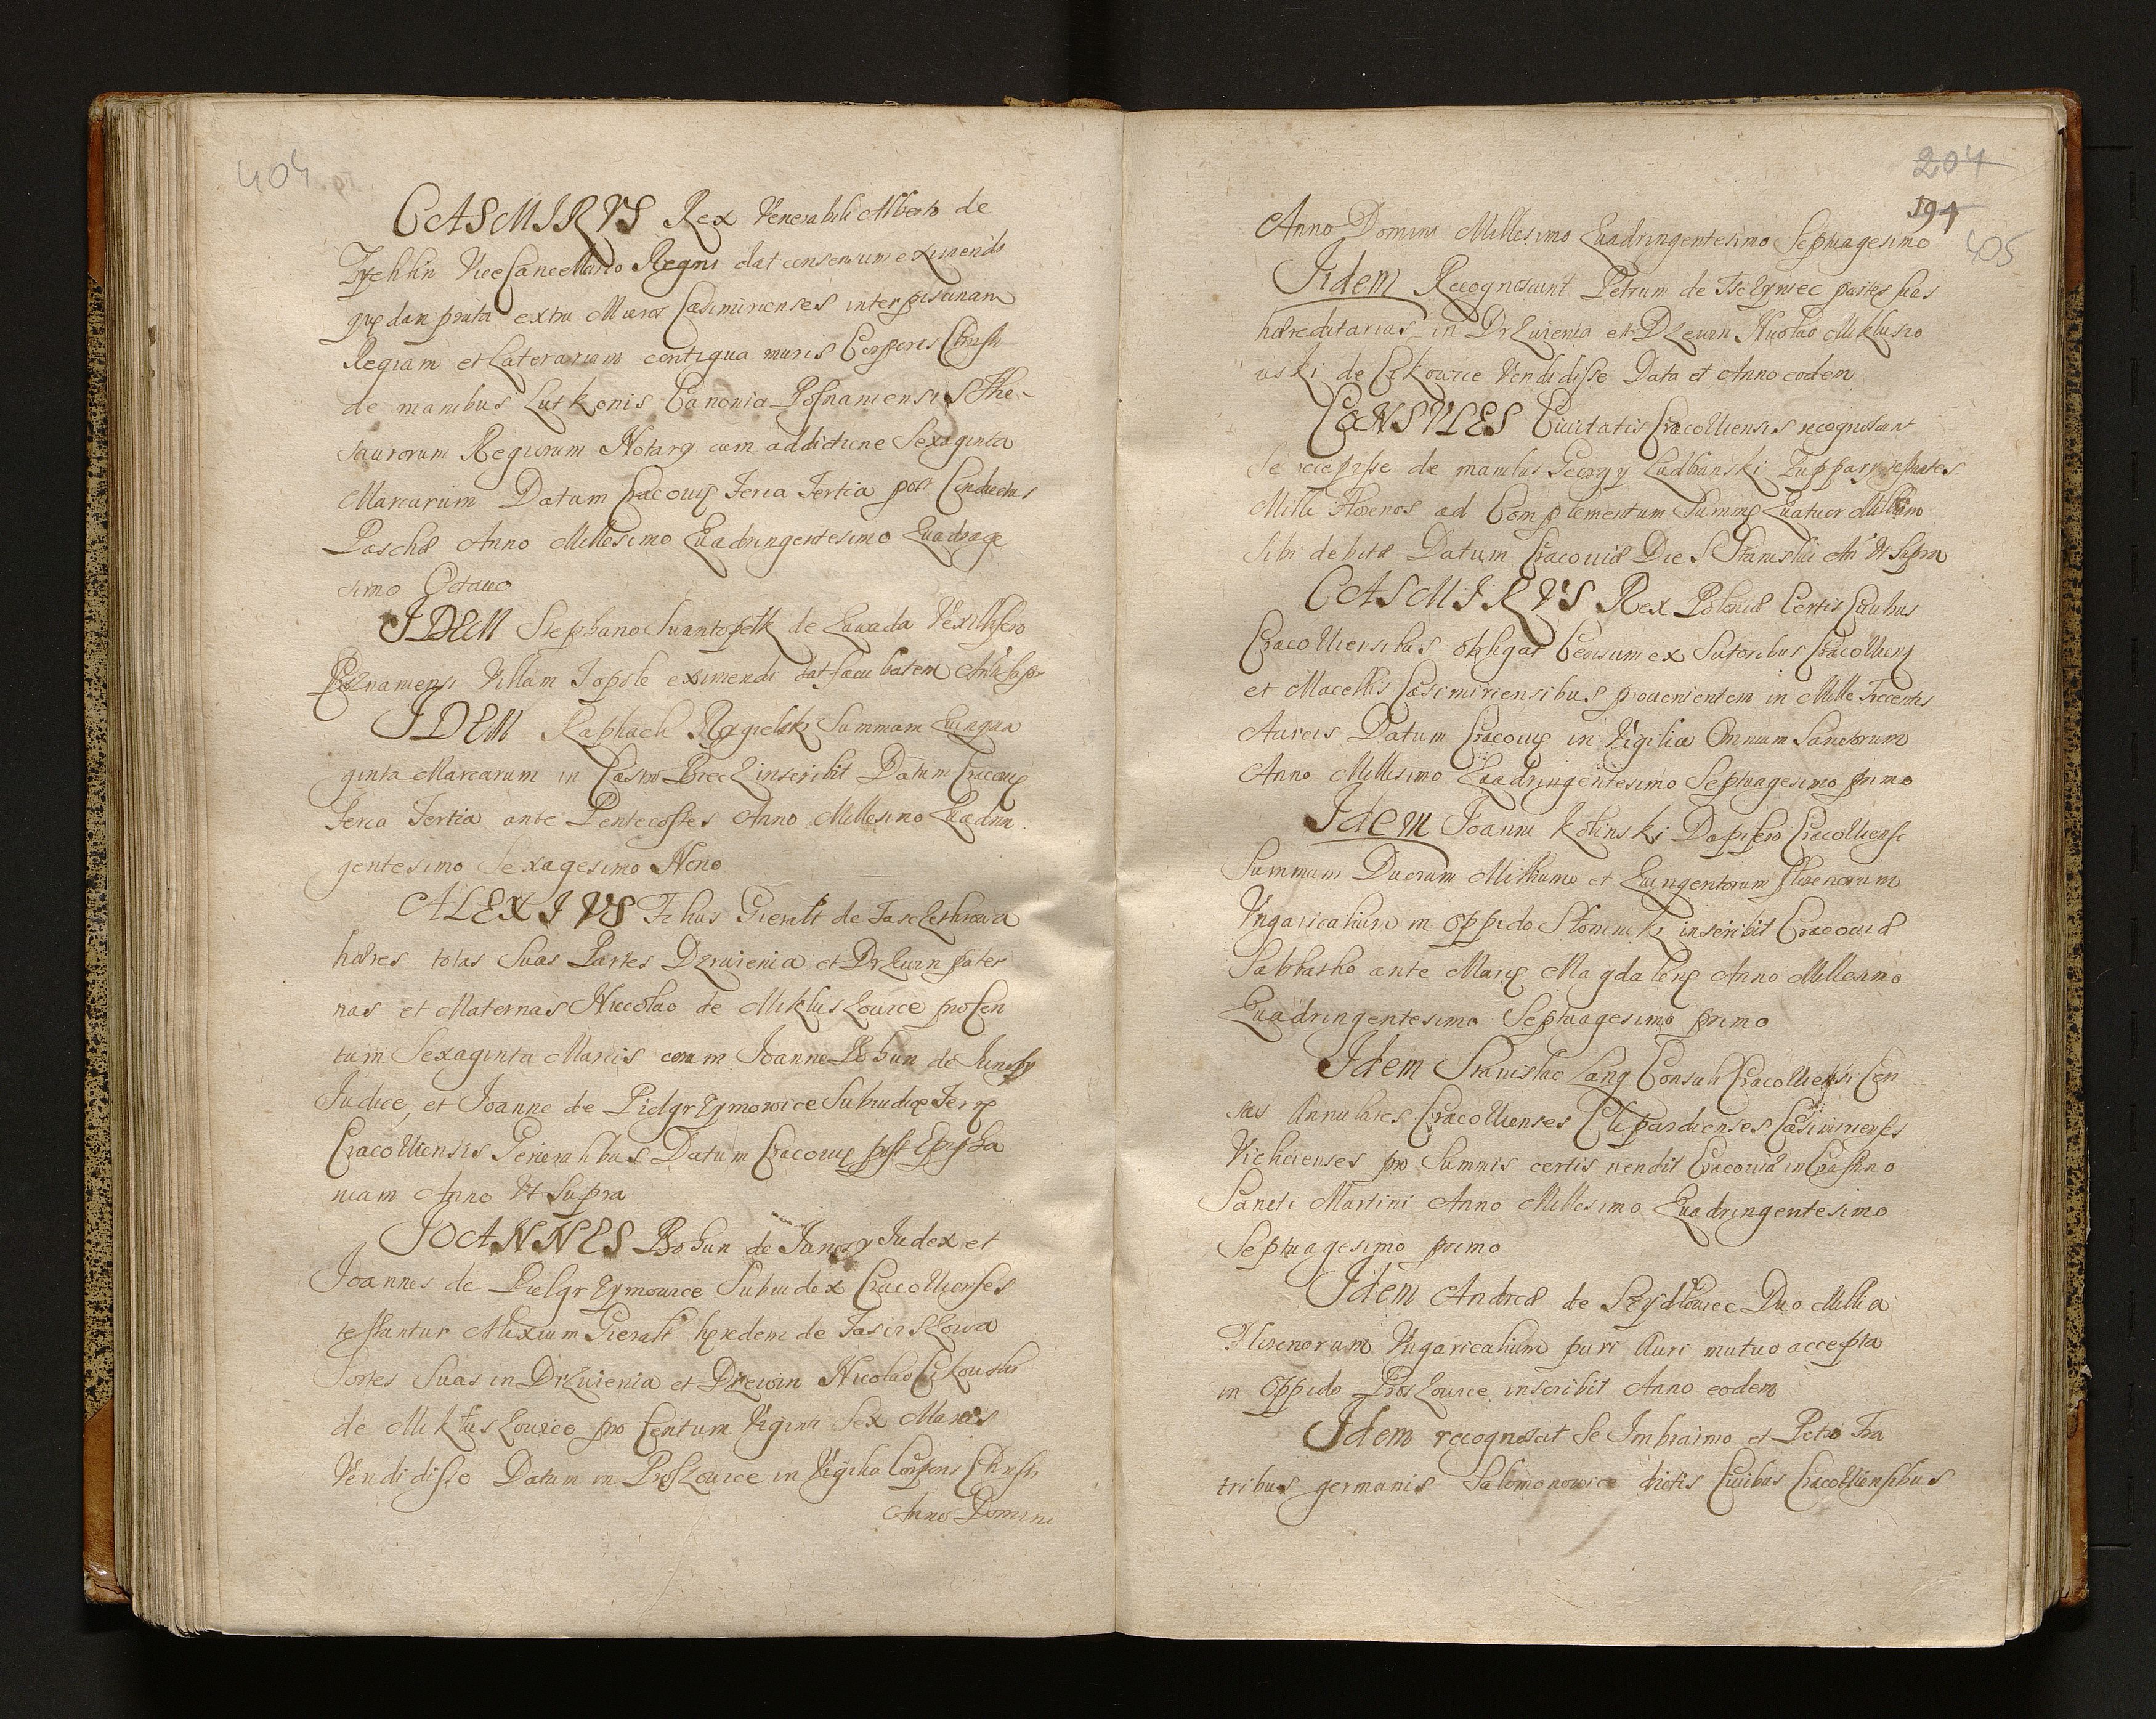 404
CASMIRVS Rex Venerabili Alberto de
Zychlin ViceCancellario Regni dat consensum eximendi
quędan prata extra Muros Casimirienses inter piscinam
Regiam et Laterariam contigua muris Corporis Christi
de manibus Lutkonis Canonici Posnaniensis The-
saurorum Regiorum Notarÿ cum addictione Sexaginta
Marcarum Datum Cracouię Feria Tertia post Conductus
Paschæ Anno Millesimo Quadringentesimo Quadrage
simo Octauo
IDEM Stephano Suantopelk de Zawada Vexillifero
Posnaniensi Villam Topole eximendi dat facultatem
IDEM Raphaeli Summam Quinqua
ginta Marcarum in Castro Biecz inscribit Datum Cracouię
Feria Tertia ante Pentecostes Anno Millesimo Quadrin
gentesimo Sexagesimo Nono
ALEXIVS Filius Gieralt de
hæres totas Suas Partes Drzuienia et Drzuin pater
nas et Maternas Nicolao de Mikluszowice pro Cen
tum Sexaginta Marcis coram Joanne Bohun de
Judice, et Joanne de Pielgrzymowice Subiudice Terrę
Cracouiensis Generalibus Datum Cracouię post Epipha
niam Anno Vt Supra
JOANNES Bohun de Judex et
Joannes de Pielgrzymowice Subiudex Cracouienses
testantur Alexium Gieralt hęredem de
Sortes Suas in Drzuienia et Drzewin Nicolao Cikowski
de Mikłuszowice pro Centum Viginti Sex Marcis
Vendidisse Datum in Proszowice in Vigilia Corporis Christi
Anno Domini
204
194
405
Anno Domini Millesimo Quadringentesimo Septuagesimo
Iidem Recognoscunt Petrum de partes suas
hæreditarias in Drzuienia et Drzewin Nicolao Miklusio
uski de Cikowice Vendidisse Data et Anno eodem
CONSVLES Ciuitatis Cracouiensis recognoscunt
Se recepisse de manibus Georgÿ Ludbranski Zupparÿ
Mille Florenos ad Complementum Summę Quatuor Millium
sibi debitæ Datum Cracouiæ Die S Stanislai An Vt Supra
CASMIRVS Rex Poloniæ Certis Ciuibus
Cracouiensibus obligat Censum ex Sutoribus Cracouien
et Macellis Casimiriensibus prouenientem in Mille Trecentis
Aureis Datum Cracouię in Vigilia Omnium Sanctorum
Anno Millesimo Quadringentesimo Septuagesimo primo
Idem Joanni Dapifero Cracouiensi
Summam Duorum Millium et Quingentorum Florenorum
Vngaricalium in Oppido Słomniki inscribit Cracouiæ
Sabbatho ante Marię Magdalenę Anno Millesimo
Quadringentesimo Septuagesimo primo
Idem Stanislao Lang Consuli Cracouiensi Cen
sus Annulares Cracouienses Clepardienses Casimirienses
Vielicienses pro Summis certis vendit Cracouiæ in Crastino
Sancti Martini Anno Millesimo Quadringentesimo
Septuagesimo primo
Idem Andreæ de Szydłowiec Duo Millia
Florenorum Vngaricalium puri Auri mutuo accepta
in Oppido Proszowice inscribit Anno eodem
Idem recognoscit Se Imbraimo et Petro Fra
tribus germanis Salomonowice dictis Ciuibus Cracouiensibus